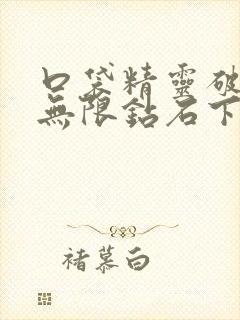 口袋精靈破
無限鉆石下
褚慕白